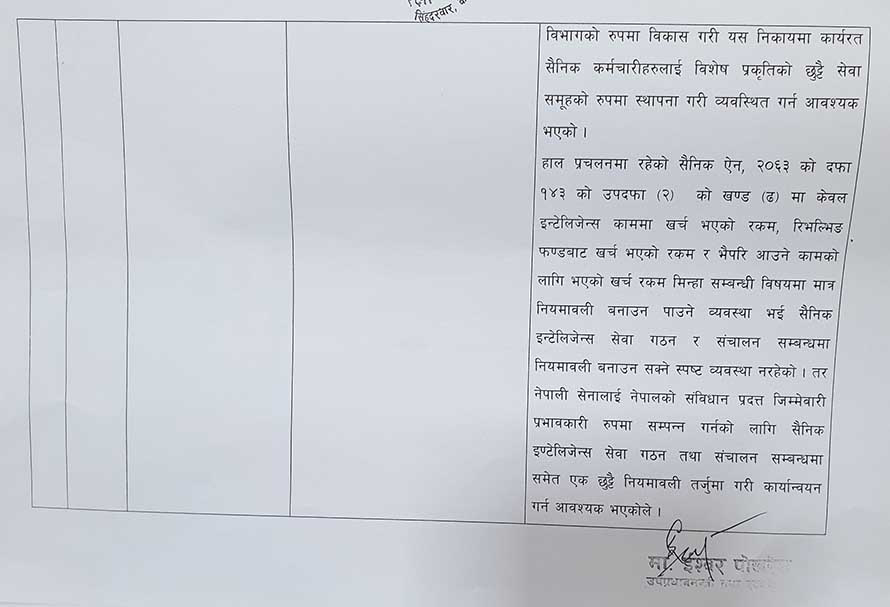 सिंहदरवार,
विभागको रुपमा विकास गरी यस निकायमा कार्यरत
सैनिक कर्मचारीहरुलाई विशेष प्रकृतिको छुट्टै सेवा
समूहको रुपमा स्थापना गरी व्यवस्थित गर्न आवश्यक
भएको ।
हाल प्रचलनमा रहेको सैनिक ऐन, २०६३ को दफा
१४३ को उपदफा (२) को खण्ड (ढ) मा केवल
इन्टेलिजेन्स काममा खर्च भएको रकम, रिभल्भिङ
फण्डबाट खर्च भएको रकम र भैपरि आउने कामको
लागि भएको खर्च रकम मिन्हा सम्बन्धी विषयमा मात्र
नियमावली बनाउन पाउने व्यवस्था भई सैनिक
इन्टेलिजेन्स सेवा गठन र संचालन सम्बन्धमा
नियमावली बनाउन सक्ने स्पष्ट व्यवस्था नरहेको । तर
नेपाली सेनालाई नेपालको संविधान प्रदत्त जिम्मेवारी
प्रभावकारी रुपमा सम्पन्न गर्नको लागि सैनिक
इण्टेलिजेन्स सेवा गठन तथा संचालन सम्बन्धमा
समेत एक छुट्टै नियमावली तर्जुमा गरी कार्यान्वयन
गर्न आवश्यक भएकोले ।
मा. ईश्वर पोखरेल
उपप्रधानमन्त्री तथा